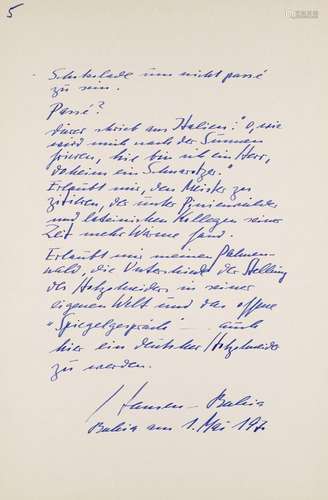 5
Schokolade um nicht passé
zu sein.
Passé?
Dürer schrieb aus Italien: "O, wie
wird mich nach der Sunnen
frieren, hie bin ich ein Herr,
daheim ein Schmarotzer."
Erlaubt mir, den Meister zu
zitieren, der unter Pinien
und lateinischen Kollegen seiner
Zeit mehr Wärme fand.
Erlaubt mir meinen Palmen-
wald, die Unterschiede der Stellung
des Holzschneiders in seiner
eigenen Welt und das offene
"Spiegelgespräch" - auch
hier ein deutscher Holzschneider
zu werden.
Hansen - Bahia
Bahia am 1. Mai